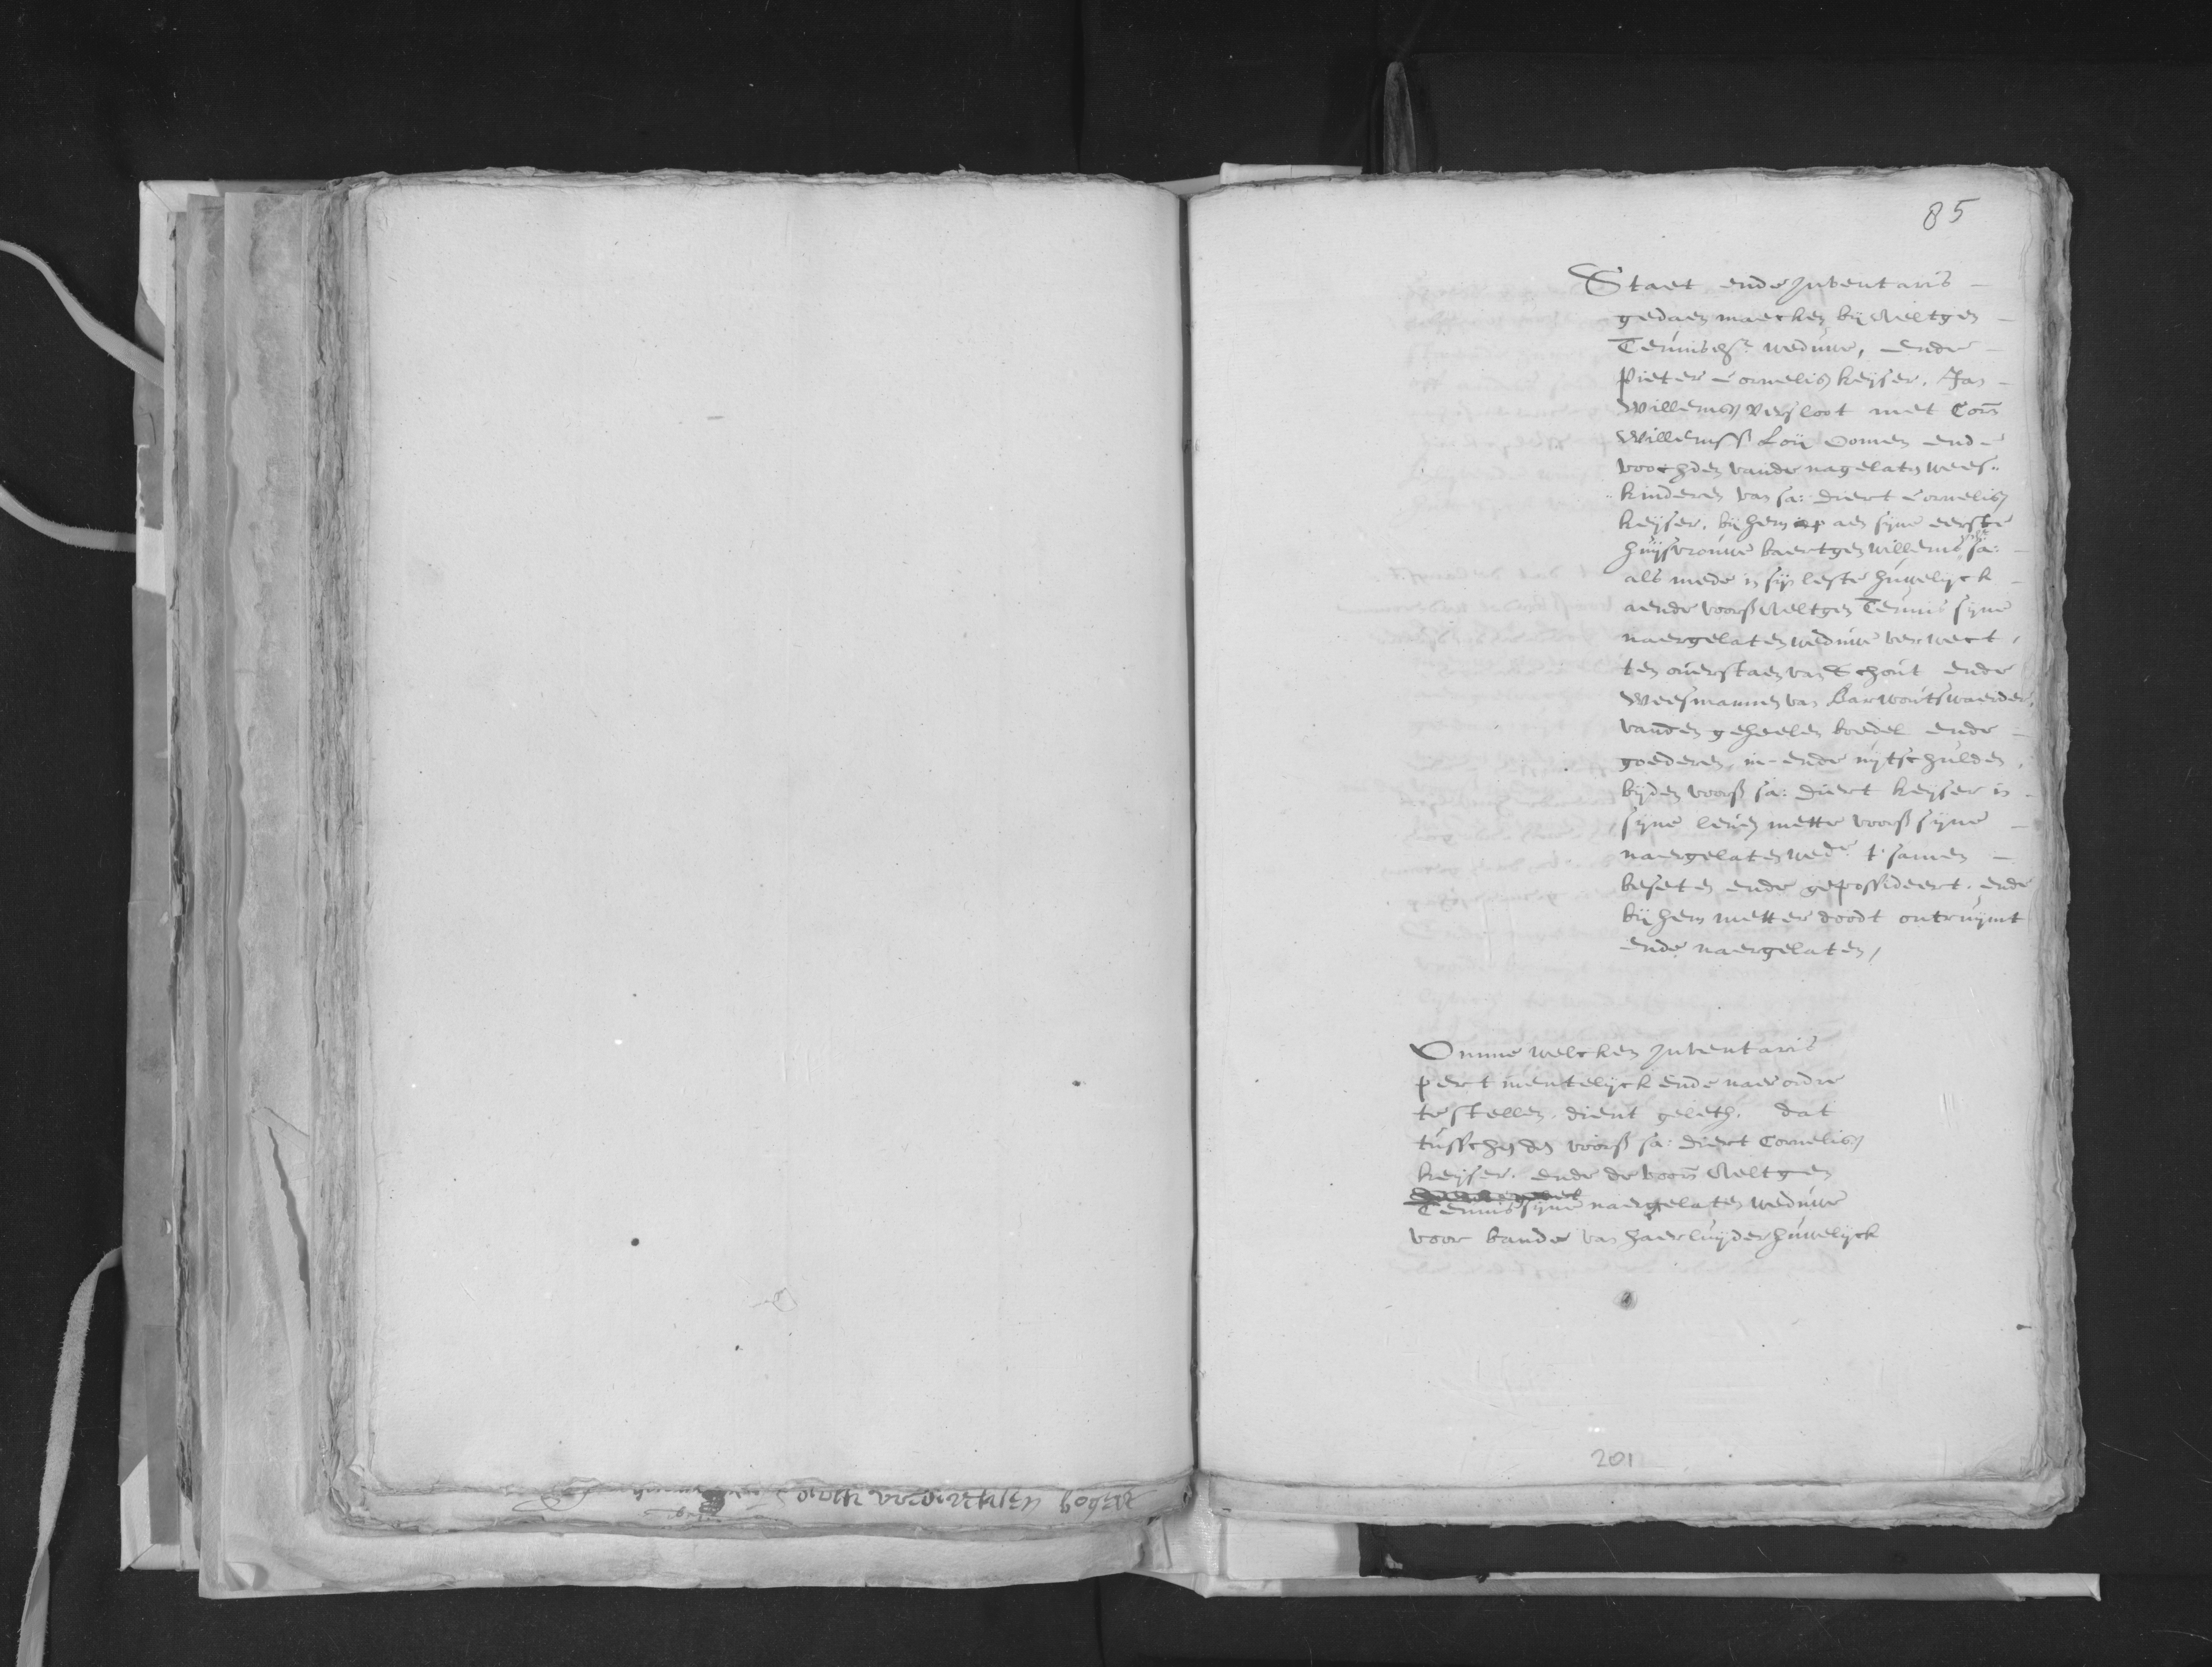 85
Staet ende Inventaris
gedaen maecken bij Neeltgen
Teunisdr. weduwe, ende
Pieter Cornelisz keijser. Jan
Willemsz versloot met Corn
Willemss Loij oomen ende
voochden vande nagelaten wees
kinderen van sa: Diert Cornelisz
keijser. bij hem aen sijne eerste
huijsvrouwe baertgen willems sa:
als mede in sijn leste huwelijck
aende voors Neeltgen Teunis sijne
naergelaten weduwe verwect,
ten overstaen van Schout ende
Weesmannen van Barwoutswaerder,
vanden geheelen boedel ende
goederen, in- ende uijtschulden,
bijden voors sa: Diert keijser in
sijne leven mette voors sijne
naergelaten wede t'samen
beseten ende gepossideert. ende
bij hem metter doodt ontruijmt
ende naergelaten,
Omme welcken Inventaris
pertinentelijck ende naer ordre
te stellen. dient geleth. dat
tusschen den voors sa: Diert Cornelisz
keijser. ende de voorn Neeltgen
Teunis sijne naergelaten weduwe
voor bande van haerluijder huwelijck
201